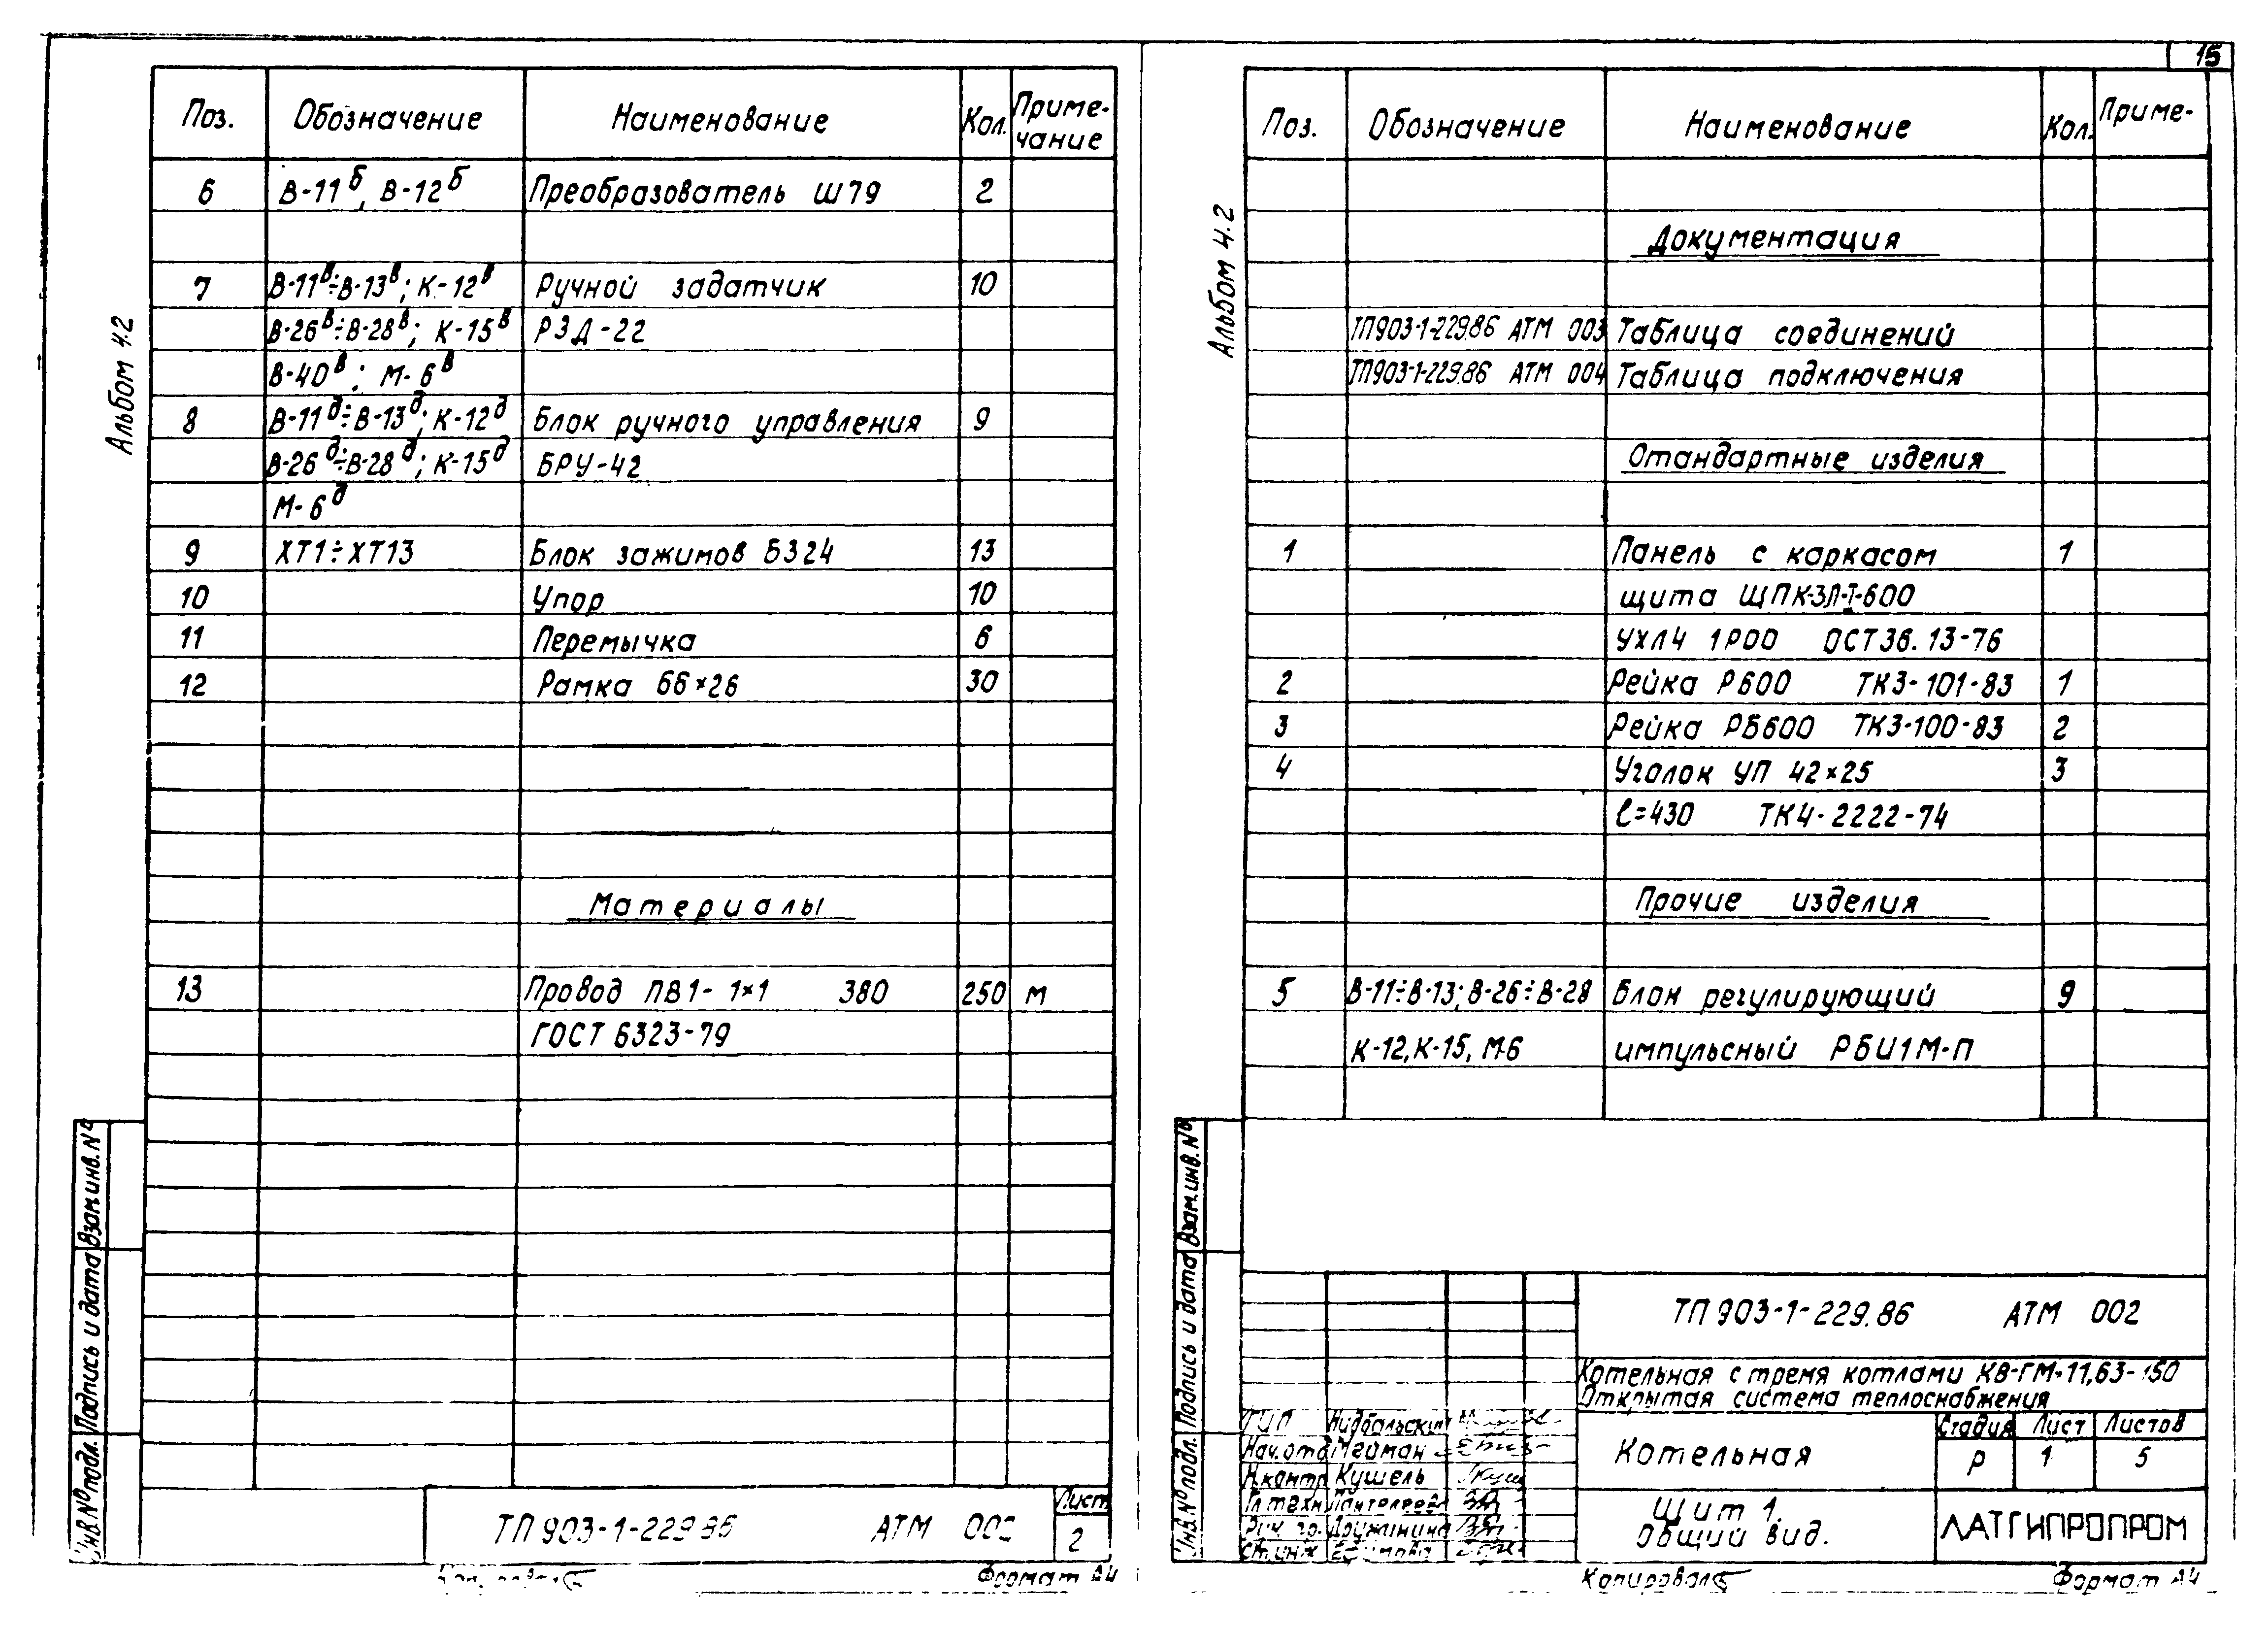 15
Альбом 4.2
Поз. Обозначение Наименование Кол. Приме-
чание
6 В-11б, В-12б Преобразователь Ш79 2
7 В-11в÷В-13в; К-12в Ручной задатчик 10
В-26в÷В-28в; К-15в РЗД-22
В-40в; М-6в
8 В-11д÷В-13д; К-12д Блок ручного управления 9
В-26д÷В-28д; К-15д БРУ-42
М-6д
9 ХТ1÷ХТ13 Блок зажимов БЗ24 13
10 Упор 10
11 Перемычка 6
12 Рамка 66×26 30
Материалы
13 Провод ПВ1- 1×1 380 250 м
ГОСТ 6323-79
Взам.инв.№
Подпись и дата
Инв.№ подл.
ТП 903-1-229.86 АТМ 002
Лист
2
Формат А4
Альбом 4.2
Поз. Обозначение Наименование Кол. Приме-
Документация
ТП903-1-229.86 АТМ 003 Таблица соединений
ТП903-1-229.86 АТМ 004 Таблица подключения
Стандартные изделия
1 Панель с каркасом 1
щита ЩПК-ЗП-I-600
УХЛ4 1Р00 ОСТ36.13-76
2 Рейка Р600 ТК3-101-83 1
3 Рейка РБ600 ТК3-100-83 2
4 Уголок УП 42×25 3
ℓ=430 ТК4-2222-74
Прочие изделия
5 В-11÷В-13; В-26÷В-28 Блок регулирующий 9
К-12, К-15, М-6 импульсный РБИ1М-П
Взам.инв.№
Подпись и дата
Инв.№ подл.
ТП 903-1-229.86 АТМ 002
Котельная с тремя котлами КВ-ГМ-11,63-150
Открытая система теплоснабжения
ГИП
Нач.отд
Н.контр Кушель
Дружинина
Ст.инж
Котельная
Стадия Лист Листов
Р 1 5
Щит 1.
Общий вид.
ЛАТГИПРОПРОМ
Копировал
Формат А4